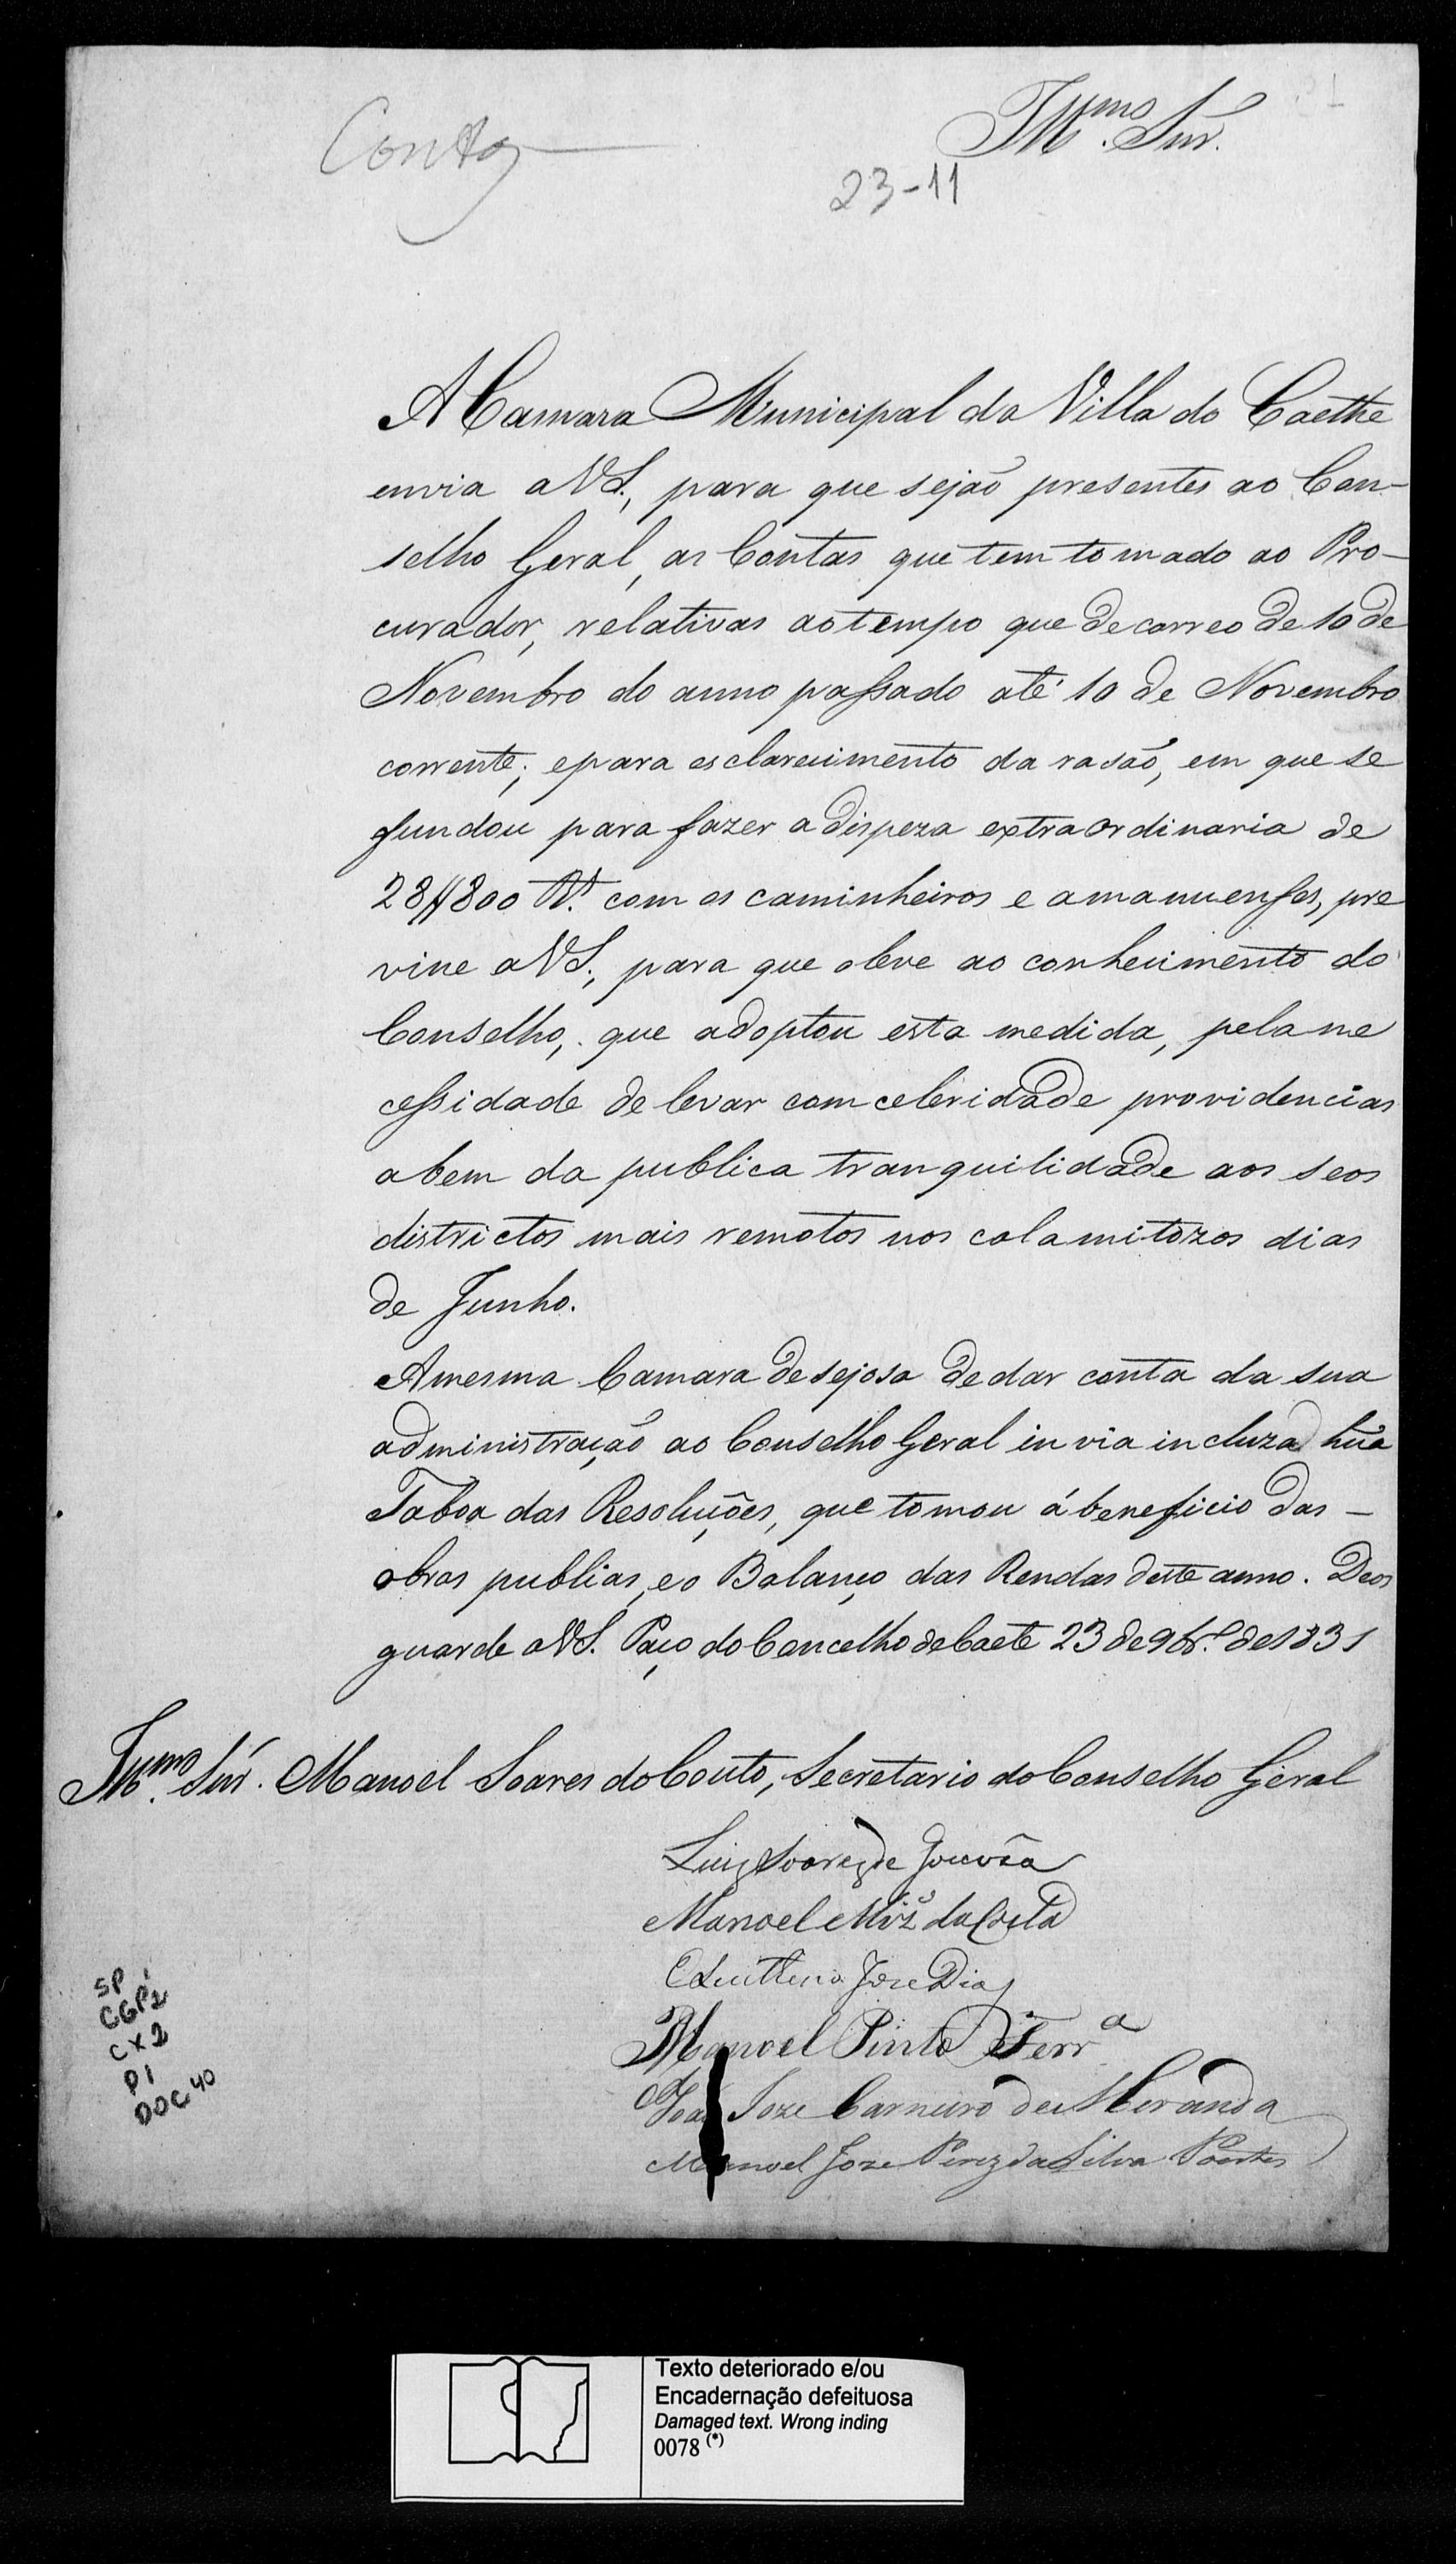 Contas
Illmo. Snr.
23-11
A Camara Municipal da Villa do Caethe
envia a VS., para que sejaõ presentes ao Con-
selho Geral, as Contas que tem tomado ao Pro-
curador, relativas ao tempo que decorreo de 10 de
Novembro do anno passado até 10 de Novembro
corrente; e para esclarecimento da rasaõ, em que se
fundou para fazer a dispeza extraordinaria de
28$800 Rs. com os caminheiros e amanuenses, pre
vine a VS., para que o leve ao conhecimento do
Conselho, que adoptou esta medida, pela ne
cessidade de levar com celeridade providencias
a bem da publica tranquilidade aos seos
districtos mais remotos nos calamitozos dias
de Junho.
A mesma Camara desejosa de dar conta da sua
administração ao Conselho Geral invia incluza hũa
Taboa das Resoluções, que tomou á beneficio das -
obras publias, e o Balanço das Rendas deste anno. Deos
guarde a VS. Paço do Concelho de Caete 23 de 9br.o de 1831
Illmo. Snr. Manoel Soares do Couto, Secretario do Conselho Geral
Luiz Soares de Gouvêa
Manoel Miz da Costa
Eleutherio Joze Dias
Manoel Pinto Ferr.a
Joaõ Joze Carneiro de Miranda
Manoel Joze Perez da Silva Pontes
SP
CGP1
CX2
P1
DOC 40
Texto deteriorado e/ou
Encadernação defeituosa
Damaged text. Wrong inding
0078 (*)